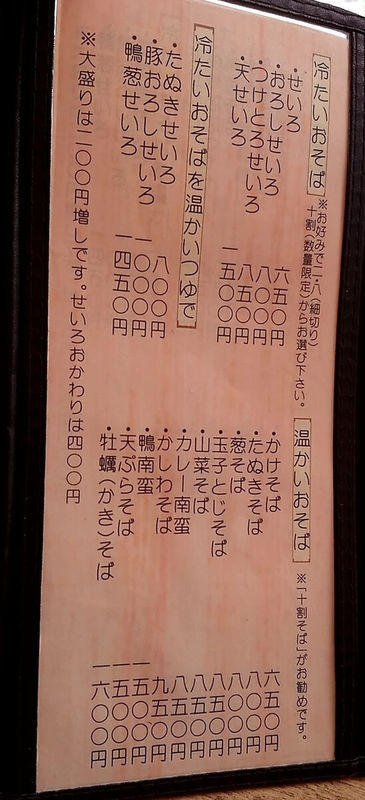 冷たいおそば
※お好みで二・八(細切り)
十割(数量限定)からお選び下さい。
・せいろ 六五〇円
・おろしせいろ 八〇〇円
・つけとろせいろ 八五〇円
・天せいろ 一五〇〇円
冷たいおそばを温かいつゆで
・たぬきせいろ 八〇〇円
・豚おろしせいろ 一〇〇〇円
・鴨葱せいろ 一四五〇円
※大盛りは二〇〇円増しです。せいろおかわりは四〇〇円
温かいおそば
※「十割そば」がお勧めです。
・かけそば 六五〇円
・たぬきそば 八〇〇円
・葱そば 八〇〇円
・玉子とじそば 八五〇円
・山菜そば 八五〇円
・カレー南蛮 八五〇円
・かしわそば 九五〇円
・鴨南蛮 一五〇〇円
・天ぷらそば 一五〇〇円
・牡蠣(かき)そば 一六〇〇円